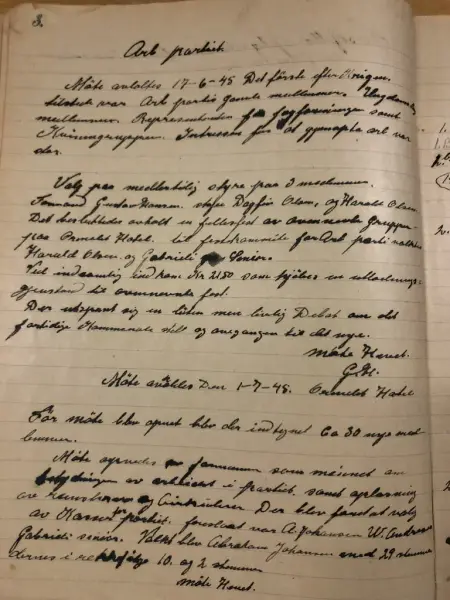 3.
Arb partiet
Møte avholtes 17-6-45 Det første efter Krigen.
tilstede var Arb partis gamle medlemmer. Ungdommens
medlemmer. Representanter fra fagforeningen samt
Kvinnegruppen. Intressen for at gjenopta arb var
der.
Valg paa medlertidig styre paa 3 medlemmer.
Formand Gustav Hansen. styre Dagfin Olsen, og Harald Olsen.
Det besluttedes avholt en fellesfest av ovennevnte grupper
paa Ormelet Hotel. til festkommite for Arb parti valtes
Harald Olsen og Gabrielsen Senior.
Vel indsamling indkom Kr 21.50 som
gjenstand til ovennevnte fest.
Der utspant sig en liten men livlig Debat om det
fortidige Kammerats still og overgangen til det nye.
møte Hevet.
G.H.
Møte avholtes Den 1-7-45. Ormelet Hotel
Før møte blev apnet blev der indtegnet Ca 30 nye med
lemmer.
Møte apnedes av formannen som mindet om
betydningen av arbeidet i partiet, samt oplesning
av og Cirkulærer. Der blev foretat valg
av Kasser partiet, foreslaat var A. Johansen W. Andersen
Gabrielsen senior. Valgt blev Abraham Johansen med 29 stemmer
dernes i rekkefølge 10. og 2 stemmer
møte Hevet.